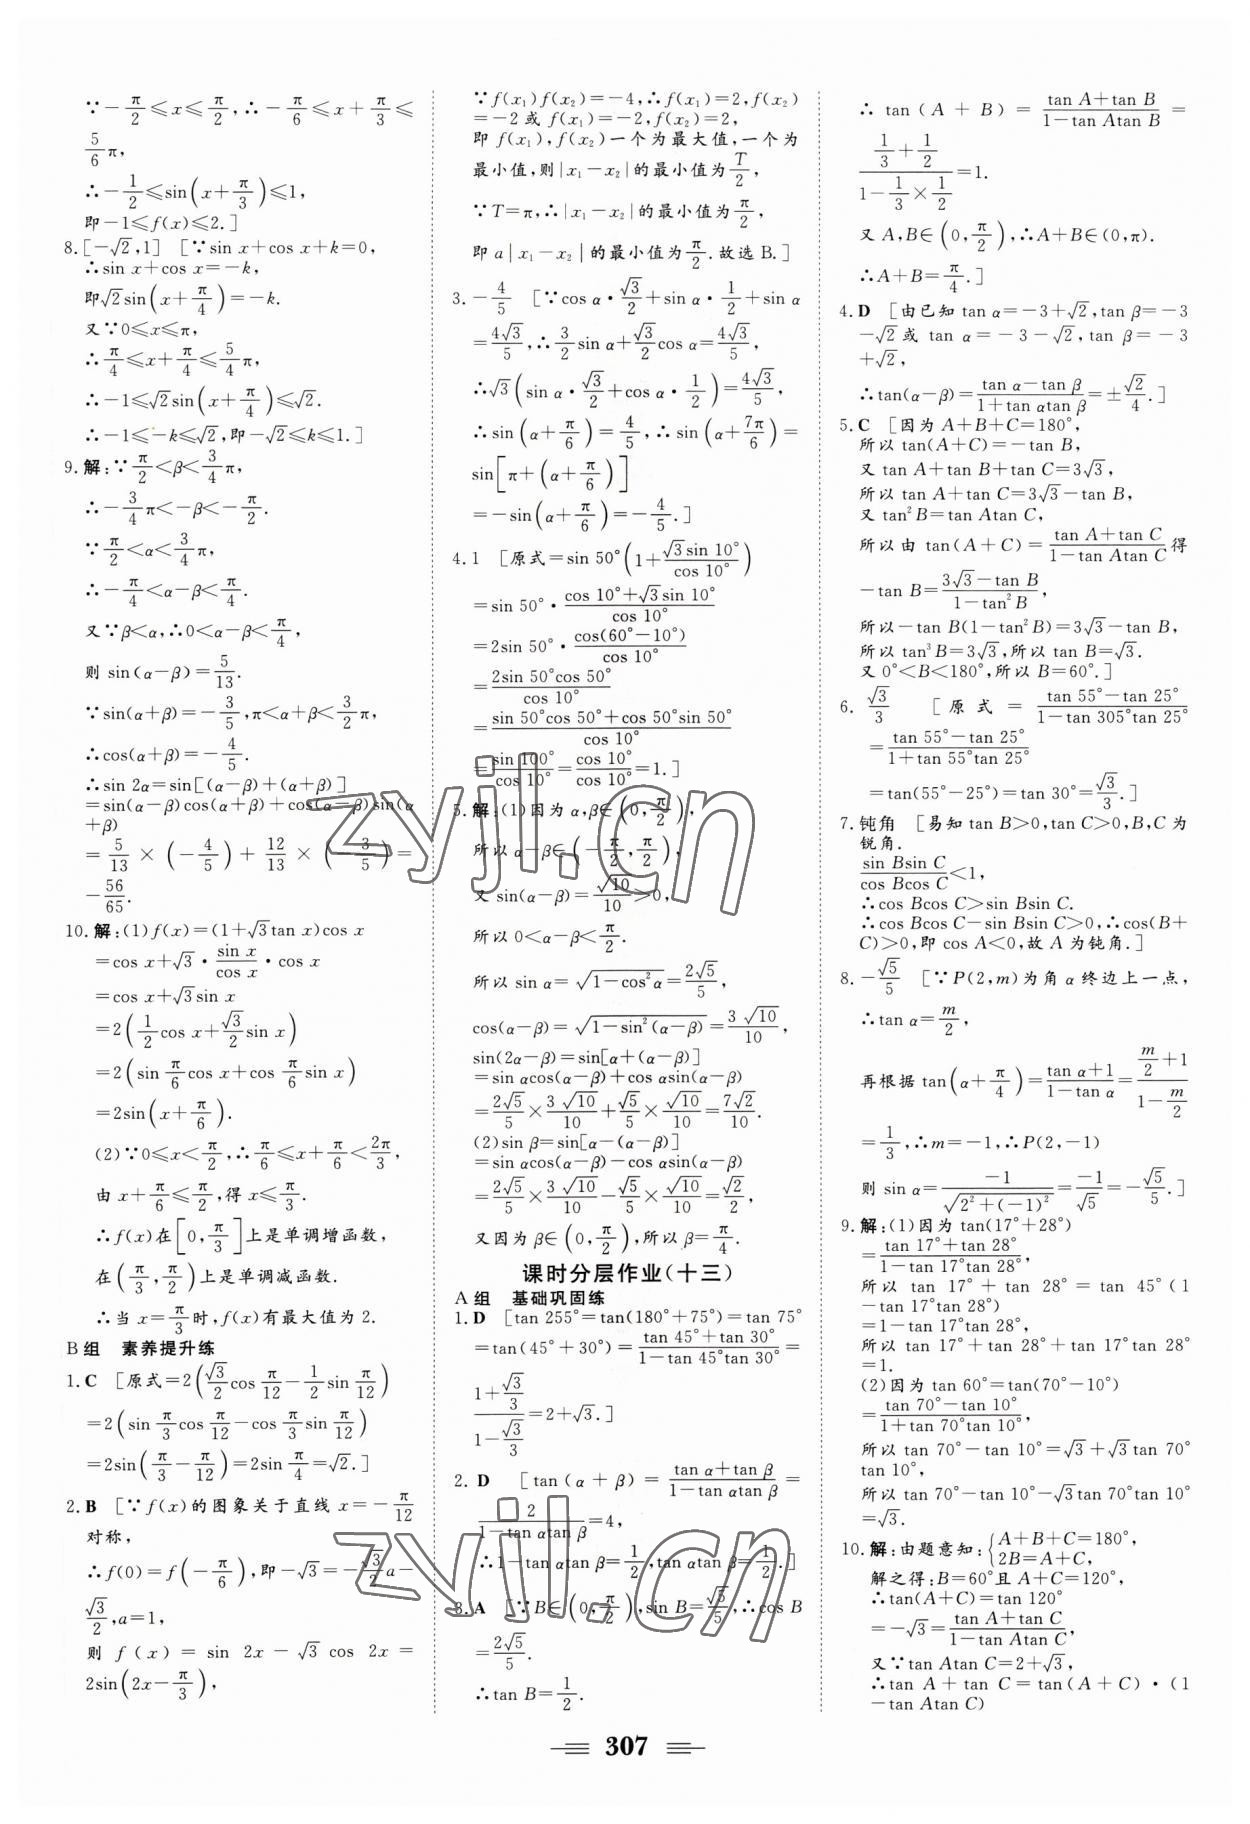 ∵−π/2≤x≤π/2,∴−π/6≤x+π/3≤
5/6π,
∴−1/2≤sin(x+π/3)≤1,
即−1≤f(x)≤2.]
8.[−√2,1] [∵sin x+cos x+k=0,
∴sin x+cos x=−k,
即√2sin(x+π/4)=−k.
又∵0≤x≤π,
∴π/4≤x+π/4≤5/4π,
∴−1≤√2sin(x+π/4)≤√2.
∴−1≤−k≤√2,即−√2≤k≤1.]
9.解:∵π/2<β<3/4π,
∴−3/4π<−β<−π/2.
∵π/2<α<3/4π,
∴−π/4<α−β<π/4.
又∵β<α,∴0<α−β<π/4,
则 sin(α−β)=5/13.
∵sin(α+β)=−3/5,π<α+β<3/2π,
∴cos(α+β)=−4/5.
∴sin 2α=sin[(α−β)+(α+β)]
=sin(α−β)cos(α+β)+cos(α−β)sin(α
+β)
=5/13×(−4/5)+12/13×(−3/5)=
−56/65.
10.解:(1)f(x)=(1+√3tan x)cos x
=cos x+√3·sin x/cos x·cos x
=cos x+√3sin x
=2(1/2cos x+√3/2sin x)
=2(sin π/6cos x+cos π/6sin x)
=2sin(x+π/6).
(2)∵0≤x<π/2,∴π/6≤x+π/6<2π/3,
由 x+π/6≤π/2,得 x≤π/3.
∴f(x)在[0,π/3]上是单调增函数,
在(π/3,π/2)上是单调减函数.
∴当 x=π/3时,f(x)有最大值为 2.
B组 素养提升练
1.C [原式=2(√3/2cos π/12−1/2sin π/12)
=2(sin π/3cos π/12−cos π/3sin π/12)
=2sin(π/3−π/12)=2sin π/4=√2.]
2.B [∵f(x)的图象关于直线 x=−π/12
对称,
∴f(0)=f(−π/6),即−√3=−√3/2a−
√3/2,a=1,
则 f(x)=sin 2x−√3cos 2x=
2sin(2x−π/3),
∵f(x₁)f(x₂)=−4,∴f(x₁)=2,f(x₂)
=−2 或 f(x₁)=−2,f(x₂)=2,
即 f(x₁),f(x₂)一个为最大值,一个为
最小值,则|x₁−x₂|的最小值为T/2,
∵T=π,∴|x₁−x₂|的最小值为π/2,
即 a|x₁−x₂|的最小值为π/2.故选 B.]
3.−4/5 [∵cos α·√3/2+sin α·1/2+sin α
=4√3/5,∴3/2sin α+√3/2cos α=4√3/5,
∴√3(sin α·√3/2+cos α·1/2)=4√3/5,
∴sin(α+π/6)=4/5,∴sin(α+7π/6)=
sin[π+(α+π/6)]
=−sin(α+π/6)=−4/5.]
4.1 [原式=sin 50°(1+√3sin 10°/cos 10°)
=sin 50°·(cos 10°+√3sin 10°)/cos 10°
=2sin 50°·cos(60°−10°)/cos 10°
=2sin 50°cos 50°/cos 10°
=(sin 50°cos 50°+cos 50°sin 50°)/cos 10°
=sin 100°/cos 10°=cos 10°/cos 10°=1.]
5.解:(1)因为 α,β∈(0,π/2),
所以 α−β∈(−π/2,π/2),
又 sin(α−β)=√10/10>0,
所以 0<α−β<π/2.
所以 sin α=√(1−cos²α)=2√5/5,
cos(α−β)=√(1−sin²(α−β))=3√10/10,
sin(2α−β)=sin[α+(α−β)]
=sin αcos(α−β)+cos αsin(α−β)
=2√5/5×3√10/10+√5/5×√10/10=7√2/10.
(2)sin β=sin[α−(α−β)]
=sin αcos(α−β)−cos αsin(α−β)
=2√5/5×3√10/10−√5/5×√10/10=√2/2,
又因为 β∈(0,π/2),所以 β=π/4.
课时分层作业(十三)
A组 基础巩固练
1.D [tan 255°=tan(180°+75°)=tan 75°
=tan(45°+30°)=(tan 45°+tan 30°)/(1−tan 45°tan 30°)=
(1+√3/3)/(1−√3/3)=2+√3.]
2.D [tan(α+β)=(tan α+tan β)/(1−tan αtan β)=
2/(1−tan αtan β)=4,
∴1−tan αtan β=1/2,tan αtan β=1/2.]
3.A [∵B∈(0,π/2),sin B=√5/5,∴cos B
=2√5/5.
∴tan B=1/2.
∴tan(A+B)=(tan A+tan B)/(1−tan Atan B)=
(1/3+1/2)/(1−1/3×1/2)=1.
又 A,B∈(0,π/2),∴A+B∈(0,π).
∴A+B=π/4.]
4.D [由已知 tan α=−3+√2,tan β=−3
−√2或 tan α=−3−√2,tan β=−3
+√2,
∴tan(α−β)=(tan α−tan β)/(1+tan αtan β)=±√2/4.]
5.C [因为 A+B+C=180°,
所以 tan(A+C)=−tan B,
又 tan A+tan B+tan C=3√3,
所以 tan A+tan C=3√3−tan B,
又 tan²B=tan Atan C,
所以由 tan(A+C)=(tan A+tan C)/(1−tan Atan C)得
−tan B=(3√3−tan B)/(1−tan²B),
所以−tan B(1−tan²B)=3√3−tan B,
所以 tan³B=3√3,所以 tan B=√3.
又 0°<B<180°,所以 B=60°.]
6.√3/3 [原式=(tan 55°−tan 25°)/(1−tan 305°tan 25°)
=(tan 55°−tan 25°)/(1+tan 55°tan 25°)
=tan(55°−25°)=tan 30°=√3/3.]
7.钝角 [易知 tan B>0,tan C>0,B,C 为
锐角.
sin Bsin C/cos Bcos C<1,
∴cos Bcos C>sin Bsin C.
∴cos Bcos C−sin Bsin C>0,∴cos(B+
C)>0,即 cos A<0,故 A 为钝角.]
8.−√5/5 [∵P(2,m)为角 α 终边上一点,
∴tan α=m/2,
再根据 tan(α+π/4)=(tan α+1)/(1−tan α)=(m/2+1)/(1−m/2)
=1/3,∴m=−1,∴P(2,−1)
则 sin α=−1/√(2²+(−1)²)=−1/√5=−√5/5.]
9.解:(1)因为 tan(17°+28°)
=(tan 17°+tan 28°)/(1−tan 17°tan 28°),
所以 tan 17°+tan 28°=tan 45°(1
−tan 17°tan 28°)
=1−tan 17°tan 28°,
所以 tan 17°+tan 28°+tan 17°tan 28°
=1.
(2)因为 tan 60°=tan(70°−10°)
=(tan 70°−tan 10°)/(1+tan 70°tan 10°),
所以 tan 70°−tan 10°=√3+√3tan 70°
tan 10°,
所以 tan 70°−tan 10°−√3tan 70°tan 10°
=√3.
10.解:由题意知:{A+B+C=180°,
2B=A+C,
解之得:B=60°且 A+C=120°,
∴tan(A+C)=tan 120°
=−√3=(tan A+tan C)/(1−tan Atan C),
又∵tan Atan C=2+√3,
∴tan A+tan C=tan(A+C)·(1
−tan Atan C)
307
zyjl.cn
zyjl.cn